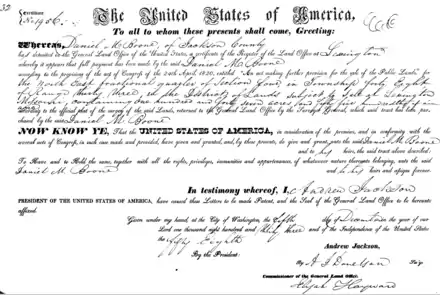 Certificate
No. 1956
The United States of America,
To all to whom these presents shall come, Greeting:
Whereas, Daniel M. Boone, of Jackson County
had deposited in the General Land Office of the United States, a certificate of the Register of the Land Office at Lexington
whereby it appears that full payment has been made by the said Daniel M. Boone
according to the provisions of the act of Congress of the 24th April, 1820, entitled "An act making further provision for the sale of the Public Lands," for
the North East fractional quarter of Section Four, in Township Forty Eight
of Range thirty three, in the District of Lands subject to sale at Lexington
Missouri, containing one hundred and forty seven acres and forty five hundredths of an acre
according to the official plat of the survey of the said Lands, returned to the General Land Office by the Surveyor General, which said tract has been pur-
chased by the said Daniel M. Boone
NOW KNOW YE, That the UNITED STATES OF AMERICA, in consideration of the premises, and in conformity with the
several acts of Congress, in such case made and provided, have given and granted, and, by these presents, do give and grant, unto the said Daniel M. Boone
and to his heirs, the said tract above described:
To Have and to Hold the same, together with all the rights, privileges, immunities and appurtenances, of whatsoever nature thereunto belonging, unto the said
Daniel M. Boone and to his heirs and assigns forever.
In testimony whereof, I, Andrew Jackson
PRESIDENT OF THE UNITED STATES OF AMERICA, have caused these Letters to be made Patent, and the Seal of the General Land Office to be hereunto
affixed.
Given under my hand, at the City of Washington, the fifth day of December in the year of our
Lord one thousand eight hundred and thirty three and of the Independence of the United States
the fifty Eighth
By the President: Andrew Jackson,
By A. J. Donelson Sec'y
Commissioner of the General Land Office.
Elijah Hayward